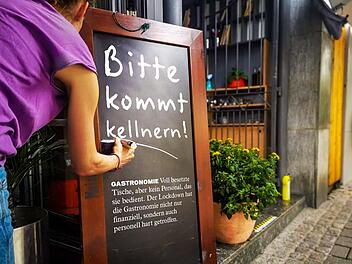 Bitte
kommt
kellnern!
GASTRONOMIE Voll besetzte
Tische, aber kein Personal, das
sie bedient. Der Lockdown hat
die Gastronomie nicht nur
finanziell, sondern auch
personell hart getroffen.